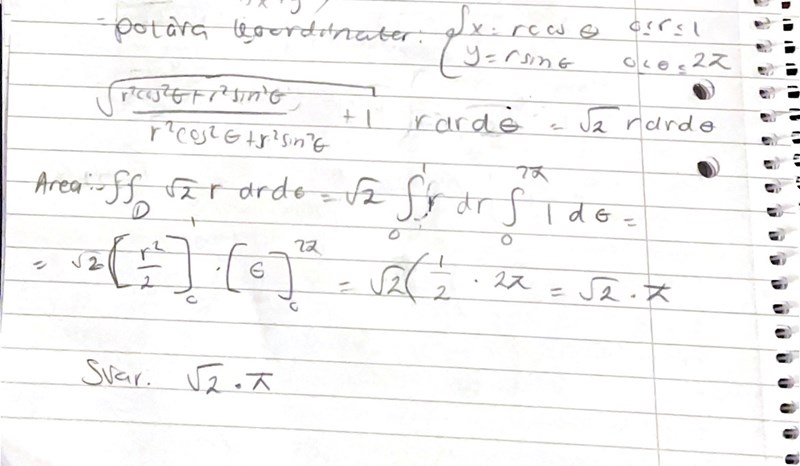 - polära koordinater: { x = r cos θ 0≤r≤1
y = r sin θ 0≤θ≤2π
√((r²cos²θ + r²sin²θ)/(r²cos²θ + r²sin²θ) + 1) r dr dθ = √2 r dr dθ
Area: ∬_D √2 r dr dθ = √2 ∫_0^1 r dr ∫_0^2π 1 dθ =
= √2 [r²/2]_0^1 · [θ]_0^2π = √2 ( 1/2 · 2π = √2 · π
Svar. √2 · π